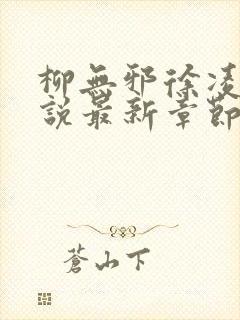 柳無邪徐凌
說最新章節
蒼山下